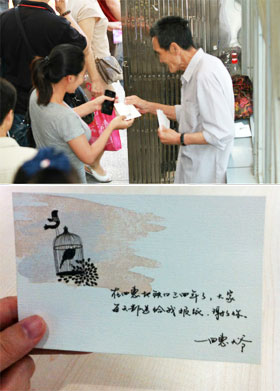 在四惠地铁口三四年了，大家
每天都送给我报纸，谢谢你。
—四惠大爷